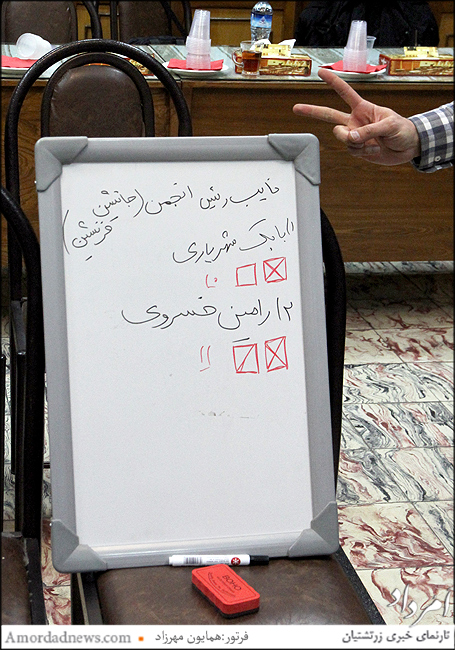 نایب رئیس انجمن (جانشین
گرنشین)
۱/ بابک شهریاری
۱۰
۲/ رامین خسروی
۱۱
BOHO
امرداد
Amordadnews.com
فرتور:همایون مهرزاد
تارنمای خبری زرتشتیان